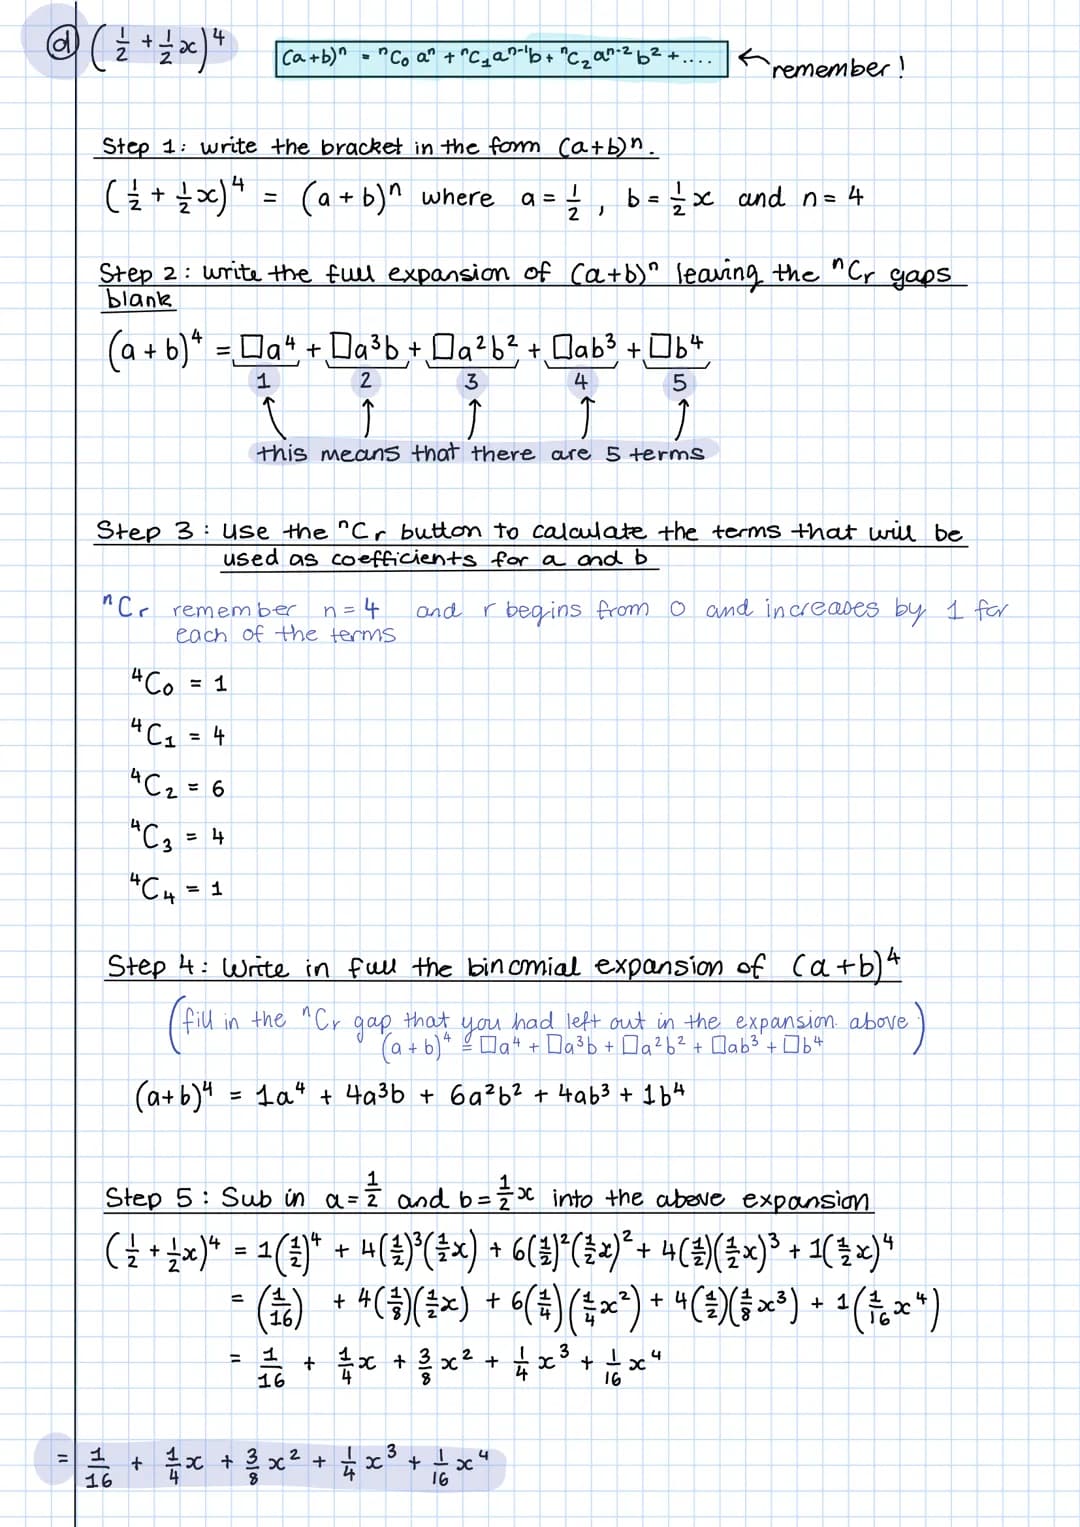 (d) (1/2 + 1/2 x)⁴
(a+b)ⁿ = ⁿC₀ aⁿ + ⁿC₁aⁿ⁻¹b + ⁿC₂aⁿ⁻²b² + ....
remember!
Step 1: write the bracket in the form (a+b)ⁿ.
(1/2 + 1/2 x)⁴ = (a + b)ⁿ where a = 1/2 , b = 1/2 x and n = 4
Step 2: write the full expansion of (a+b)ⁿ leaving the ⁿCr gaps
blank
(a + b)⁴ = □a⁴ + □a³b + □a²b² + □ab³ + □b⁴
1 2 3 4 5
this means that there are 5 terms
Step 3: use the ⁿCr button to calculate the terms that will be
used as coefficients for a and b
ⁿCr remember n = 4 and r begins from 0 and increases by 1 for
each of the terms
⁴C₀ = 1
⁴C₁ = 4
⁴C₂ = 6
⁴C₃ = 4
⁴C₄ = 1
Step 4: Write in full the binomial expansion of (a+b)⁴
(fill in the ⁿCr gap that you had left out in the expansion above
(a + b)⁴ = □a⁴ + □a³b + □a²b² + □ab³ + □b⁴)
(a+b)⁴ = 1a⁴ + 4a³b + 6a²b² + 4ab³ + 1b⁴
Step 5: Sub in a = 1/2 and b = 1/2 x into the above expansion
(1/2 + 1/2 x)⁴ = 1(1/2)⁴ + 4(1/2)³(1/2 x) + 6(1/2)²(1/2 x)² + 4(1/2)(1/2 x)³ + 1(1/2 x)⁴
= (1/16) + 4(1/8)(1/2 x) + 6(1/4)(1/4 x²) + 4(1/2)(1/8 x³) + 1(1/16 x⁴)
= 1/16 + 1/4 x + 3/8 x² + 1/4 x³ + 1/16 x⁴
= 1/16 + 1/4 x + 3/8 x² + 1/4 x³ + 1/16 x⁴